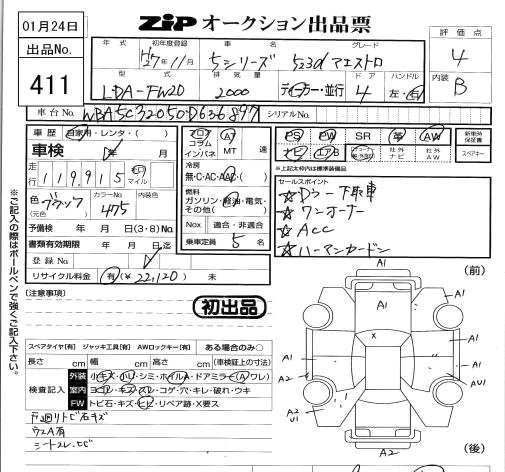 01月24日
ZiP オークション出品票
評価点
4
出品No.
411
年式
初年度登録
H27年11月
車名
5シリーズ
グレード
523d マエストロ
型式
LDA-FW20
排気量
2000
ディーラー・並行
ドア
4
ハンドル
左・右
内装
B
車台No.
WBA5C32050D636897
シリアルNo.
車歴
自家用・レンタ・( )
車検
年 月
走行
119,915
km マイル
色
ブラック
(元色)
カラーNo.
475
予備検 年 月 日(3・8)No.
書類有効期限 年 月 日迄
登録No.
リサイクル料金 有(¥22,120) 未
フロア
コラム
インパネ
A
MT
速
冷房
無・C・AC・AAC( )
燃料
ガソリン・軽油・電気・
その他( )
Nox 適合・非適合
乗車定員 5 名
PS PW SR 革 AW
ナビ エアB
社外ナビ
社外AW
新車時保証書
スペアキー
*上記太枠内は標準装備品
セールスポイント
☆Dラー下取車
☆ワンオーナー
☆ACC
☆ハーマンカードン
〔注意事項〕
初出品
スペアタイヤ[有] ジャッキ工具[有] AWロックキー[有] ある場合のみ○
長さ cm 幅 cm 高さ cm (車検証上の寸法)
検査記入
外装 小キズ・凹・シミ・ホイルA・ドアミラー(A ワレ)
室内 ヨゴレ・キズ・スレ・コゲ・穴・キレ・破れ・ウキ
FW トビ石・キズ・ヒビ・リペア跡・X要ス
下廻リトビ石キズ
ウエA有
シートスレ・ヒビ
(前)
A1
A1
A1
A1
A1
A2
A2
U1
X
A1
A1
A2
U1
A2
(後)
※ご記入の際はボールペンで強くご記入下さい。